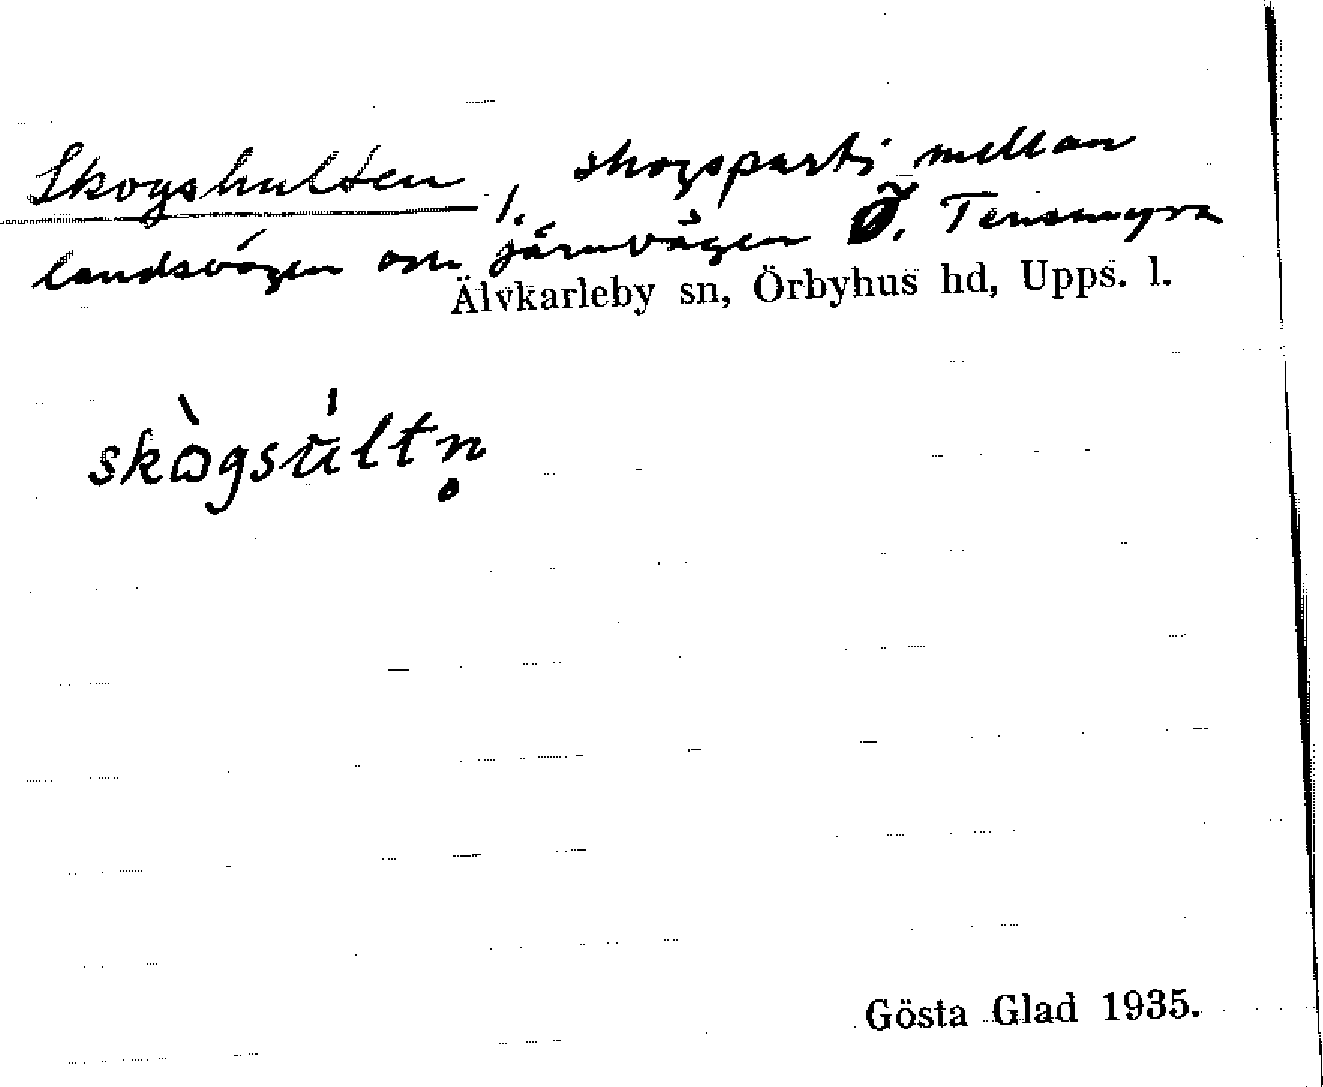 Skogshulten, 1. skogsparti mellan
landsvägen om järnvägen Ö. Tensmyra
Älvkarleby sn, Örbyhus hd, Upps. l.
skògsúltn̥
Gösta Glad 1935.